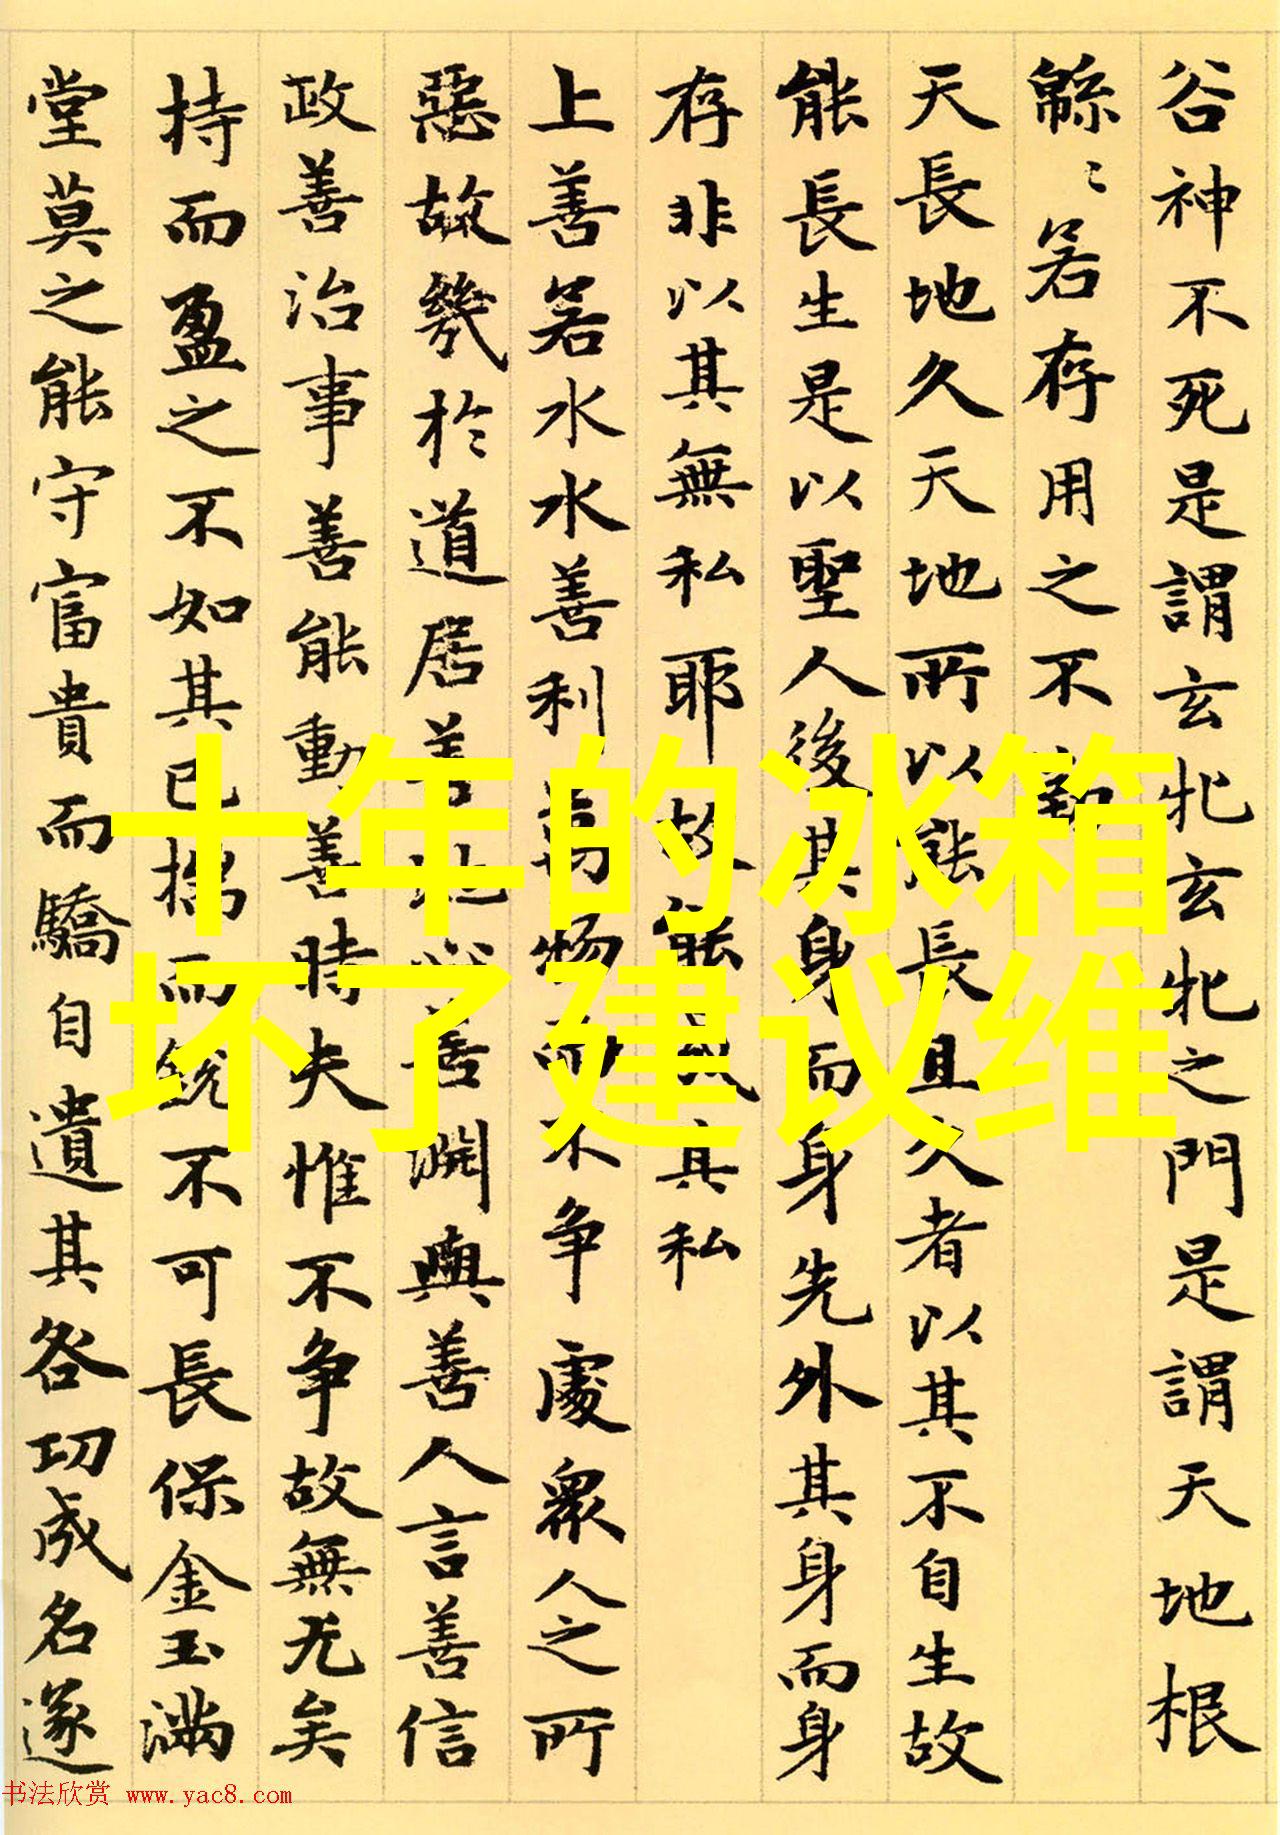 谷神不死是謂玄牝玄牝之門是謂天地根
緜〻若存用之不勤
天長地久天地所以能長且久者以其不自生故
能長生是以聖人後其身而身先外其身而身
存非以其無私耶故能成其私
上善若水水善利萬物而不争處衆人之所
惡故幾於道居善地心善淵與善人言善信
政善治事善能動善時夫惟不争故無尤矣
持而盈之不如其已揣而銳不可長保金玉滿
堂莫之能守富貴而驕自遺其咎功成名遂
十年的冰箱
坏了建议维
书法欣赏 www.yac8.com